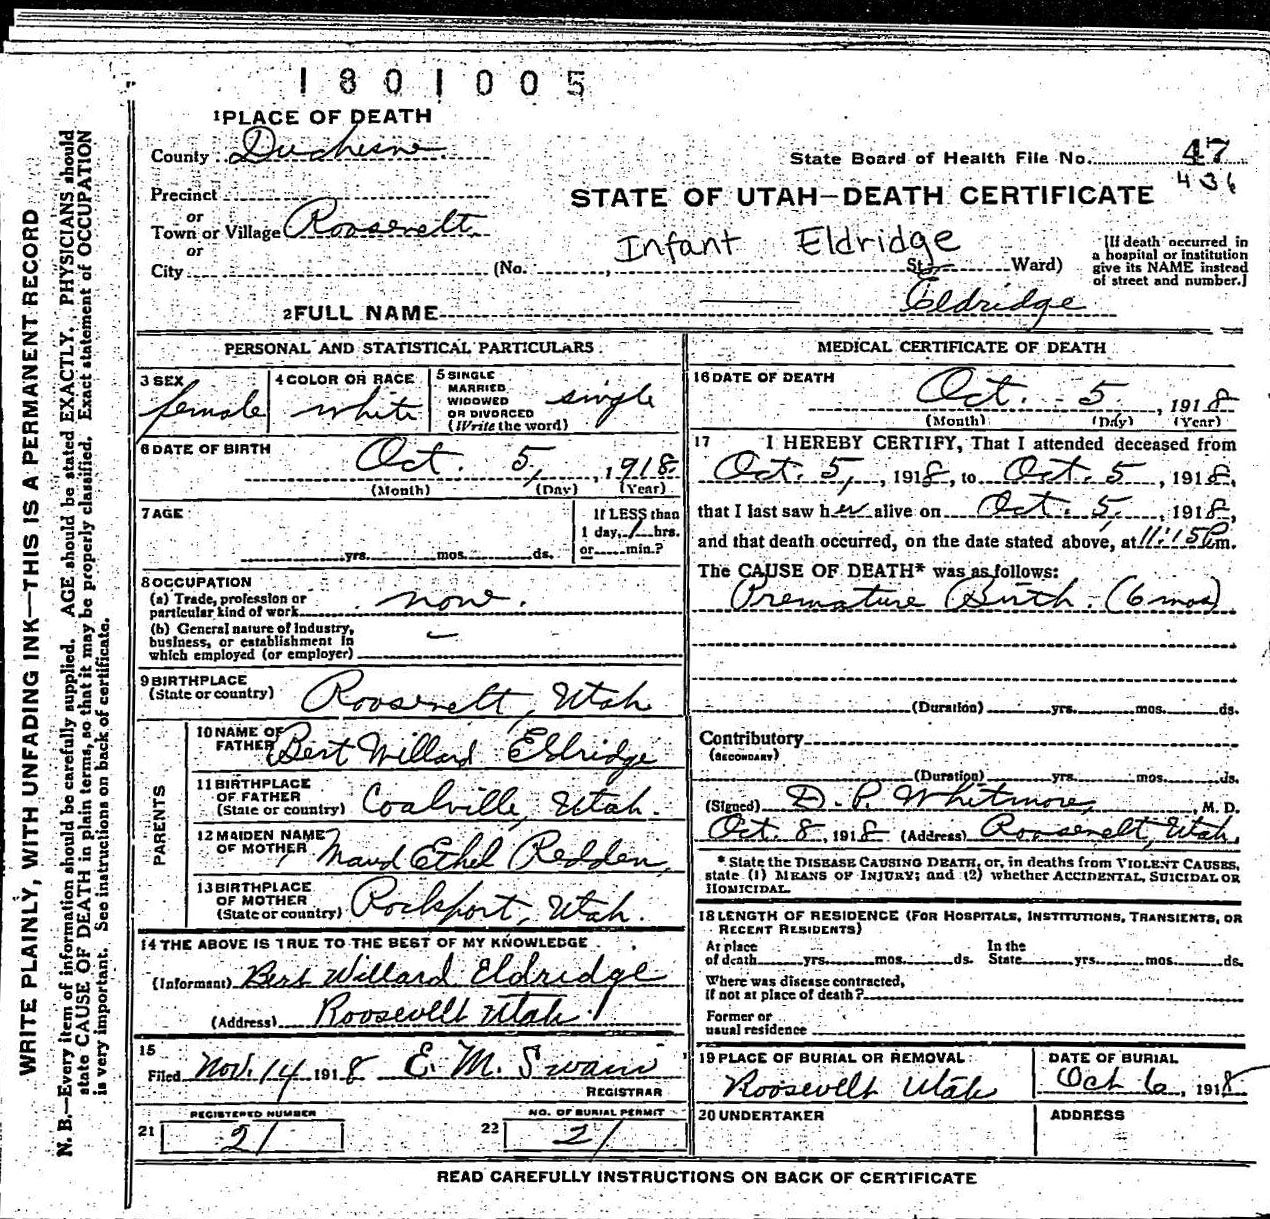 1801005
1 PLACE OF DEATH
County Duchesne
State Board of Health File No. 47
436
Precinct
STATE OF UTAH—DEATH CERTIFICATE
or
Town or Village Roosevelt
or
Infant Eldridge
City (No. , St. Ward)
[If death occurred in
a hospital or institution
give its NAME instead
of street and number.]
2 FULL NAME Eldridge
PERSONAL AND STATISTICAL PARTICULARS
3 SEX
female
4 COLOR OR RACE
white
5 SINGLE
MARRIED
WIDOWED
OR DIVORCED
(Write the word)
single
6 DATE OF BIRTH
Oct. 5, 1918
(Month) (Day) (Year)
7 AGE
yrs. mos. ds.
If LESS than
1 day, 1 hrs.
or min.?
8 OCCUPATION
(a) Trade, profession or
particular kind of work none.
(b) General nature of industry,
business, or establishment in
which employed (or employer)
9 BIRTHPLACE
(State or country) Roosevelt, Utah
PARENTS
10 NAME OF
FATHER Bert Willard Eldridge
11 BIRTHPLACE
OF FATHER
(State or country) Coalville, Utah.
12 MAIDEN NAME
OF MOTHER Maud Ethel Redden,
13 BIRTHPLACE
OF MOTHER
(State or country) Rockport, Utah.
14 THE ABOVE IS TRUE TO THE BEST OF MY KNOWLEDGE
(Informant) Bert Willard Eldridge
(Address) Roosevelt Utah
15
Filed Nov. 14 1918 E. M. Swain
REGISTRAR
REGISTERED NUMBER
21 21
NO. OF BURIAL PERMIT
22 21
MEDICAL CERTIFICATE OF DEATH
16 DATE OF DEATH
Oct. 5, 1918
(Month) (Day) (Year)
17 I HEREBY CERTIFY, That I attended deceased from
Oct. 5, 1918, to Oct. 5, 1918,
that I last saw her alive on Oct. 5, 1918,
and that death occurred, on the date stated above, at 11:15 P.m.
The CAUSE OF DEATH* was as follows:
Premature Birth. (6 mos)
(Duration) yrs. mos. ds.
Contributory
(SECONDARY)
(Duration) yrs. mos. ds.
(Signed) D. P. Whitmore, M. D.
Oct. 8, 1918 (Address) Roosevelt, Utah.
* State the DISEASE CAUSING DEATH, or, in deaths from VIOLENT CAUSES,
state (1) MEANS OF INJURY; and (2) whether ACCIDENTAL, SUICIDAL OR
HOMICIDAL.
18 LENGTH OF RESIDENCE (FOR HOSPITALS, INSTITUTIONS, TRANSIENTS, OR
RECENT RESIDENTS)
At place
of death yrs. mos. ds.
In the
State yrs. mos. ds.
Where was disease contracted,
if not at place of death?
Former or
usual residence
19 PLACE OF BURIAL OR REMOVAL
Roosevelt Utah
DATE OF BURIAL
Oct 6, 1918
20 UNDERTAKER
ADDRESS
READ CAREFULLY INSTRUCTIONS ON BACK OF CERTIFICATE
WRITE PLAINLY, WITH UNFADING INK—THIS IS A PERMANENT RECORD
N. B.—Every item of information should be carefully supplied. AGE should be stated EXACTLY. PHYSICIANS should
state CAUSE OF DEATH in plain terms, so that it may be properly classified. Exact statement of OCCUPATION
is very important. See instructions on back of certificate.